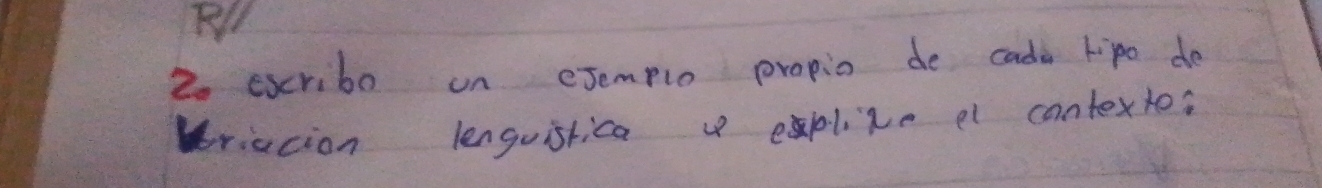 R//
2. escribo un ejemplo propio de cada tipo de
Vriacion lenguistica y explize el contexto: